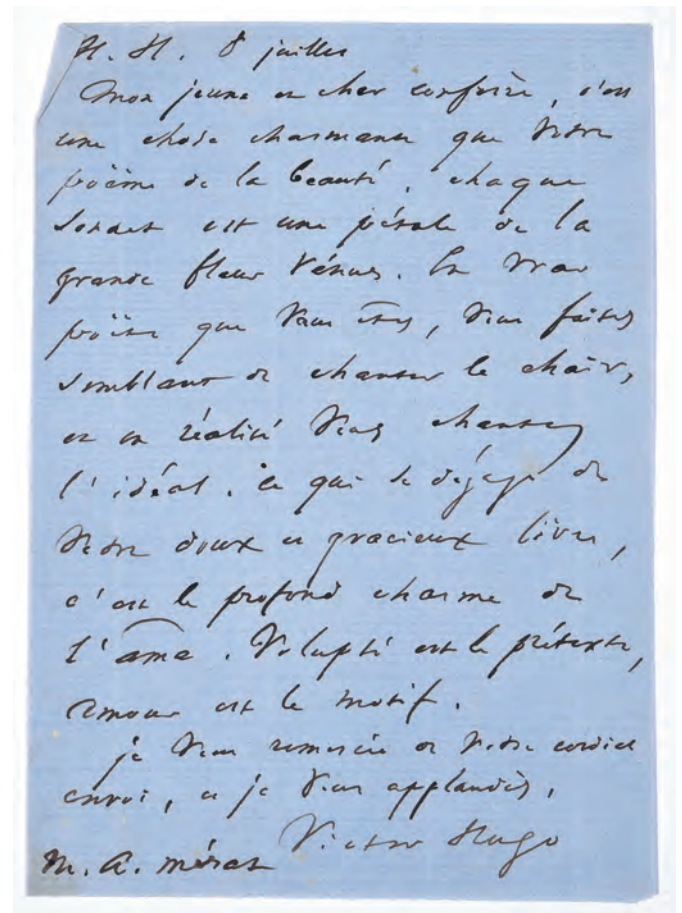 H. H. 8 juillet
Mon jeune et cher confrère, c'est
une chose charmante que votre
poëme de la beauté. chaque
sonnet est une pétale de la
grande fleur Vénus. En vrai
poëte que vous êtes, vous faites
semblant de chanter la chair,
et en réalité vous chantez
l'idéal. ce qui se dégage de
votre doux et gracieux livre,
c'est le profond charme de
l'âme. Volupté est le prétexte,
amour est le motif.
je vous remercie de votre cordial
envoi, et je vous applaudis.
Victor Hugo
M. A. mérat